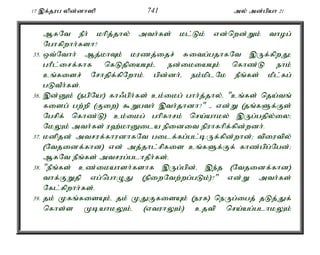 17 இக்தரப லின்னாஸி 741 அல் அன்பியா 21
ஆகவே நீர் மரித்தால் அவர்கள் மட்டும் என்றென்றும் வாழப்
போகிறார்களா?
35. ஒவ்வோர் ஆத்மாவும் மரணத்தைச் சுவைப்பதாகவே இருக்கிறது;
பரீட்சைக்காக கெடுதியையும், நன்மையையும் கொண்டு நாம்
உங்களைச் சோதிக்கிறோம். பின்னர், நம்மிடமே நீங்கள் மீட்கப்
படுவீர்கள்.
36. இன்னும் (நபியே!) காஃபிர்கள் உம்மைப் பார்த்தால், "உங்கள் தெய்வங்
களைப் பற்றி (குறை) கூறுபவர் இவர்தானா?" - என்று (தங்களுக்குள்
பேசிக் கொண்டு) உம்மைப் பரிகாசம் செய்யாமல் இருப்பதில்லை;
மேலும் அவர்கள் ரஹ்மானுடைய நினைவை நிராகரிக்கின்றனர்.
37. மனிதன் அவசரக்காரனாகவே படைக்கப்பட்டிருக்கின்றான்; விரைவில்
(வேதனைக்கான) என் அத்தாட்சிகளை உங்களுக்குக் காண்பிப்பேன்;
ஆகவே நீங்கள் அவசரப்படாதீர்கள்.
38. "நீங்கள் உண்மையாளர்களாக இருப்பின், இந்த (வேதனைக்கான)
வாக்குறுதி எப்பொழுது (நிறைவேற்றப்படும்)?" என்று அவர்கள்
கேட்கிறார்கள்.
39. தம் முகங்களையும், தம் முதுகுகளையும் (நரக) நெருப்பைத் தடுத்துக்
கொள்ள முடியாமலும், (எவராலும்) உதவி செய்யப்படாமலும்